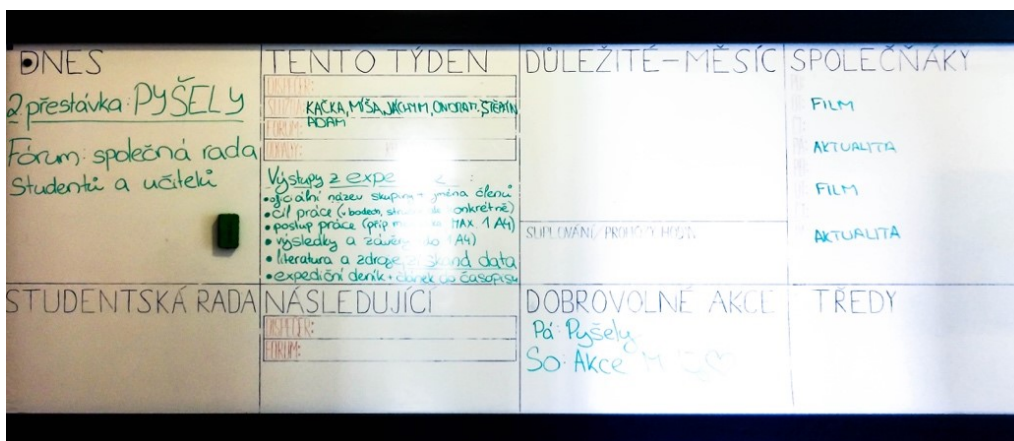 DNES
2 přestávka: PYŠELY
Fórum: společná rada
Studentů a učitelů
TENTO TÝDEN
DISPEČER:
KAČKA, MÍŠA, JÁCHYM, ONDRA, ŠTĚPÁN
FÓRUM: ADAM
Výstupy z expe
• oficiální název skupiny + jména členů
• cíl práce (v bodech, konkrétně)
• postup práce (příp MAX. 1 A4)
• výsledky a závěry do 1 A4)
• literatura a zdroje získaná data
• expediční deník + článek do časopisu
DŮLEŽITÉ-MĚSÍC
SUPLOVÁNÍ/PROHOZY/HOSTI
SPOLEČŇÁKY
FILM
AKTUALITA
FILM
AKTUALITA
STUDENTSKÁ RADA
NÁSLEDUJÍCÍ
DISPEČER:
FÓRUM:
DOBROVOLNÉ AKCE
Pá: Pyšely
So: Akce
TŘEDY